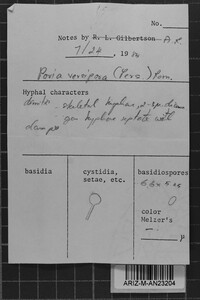 No.
Notes by R. L. Gilbertson A. R.
7/28, 19
Poria versipora (Pers.) Rom.
Hyphal characters
dimitic - skeletal hyphae
gen hyphae septate with
clamps
basidia
cystidia, setae, etc.
basidiospores
color
Melzer's
-
μ
ARIZ-M-AN23204